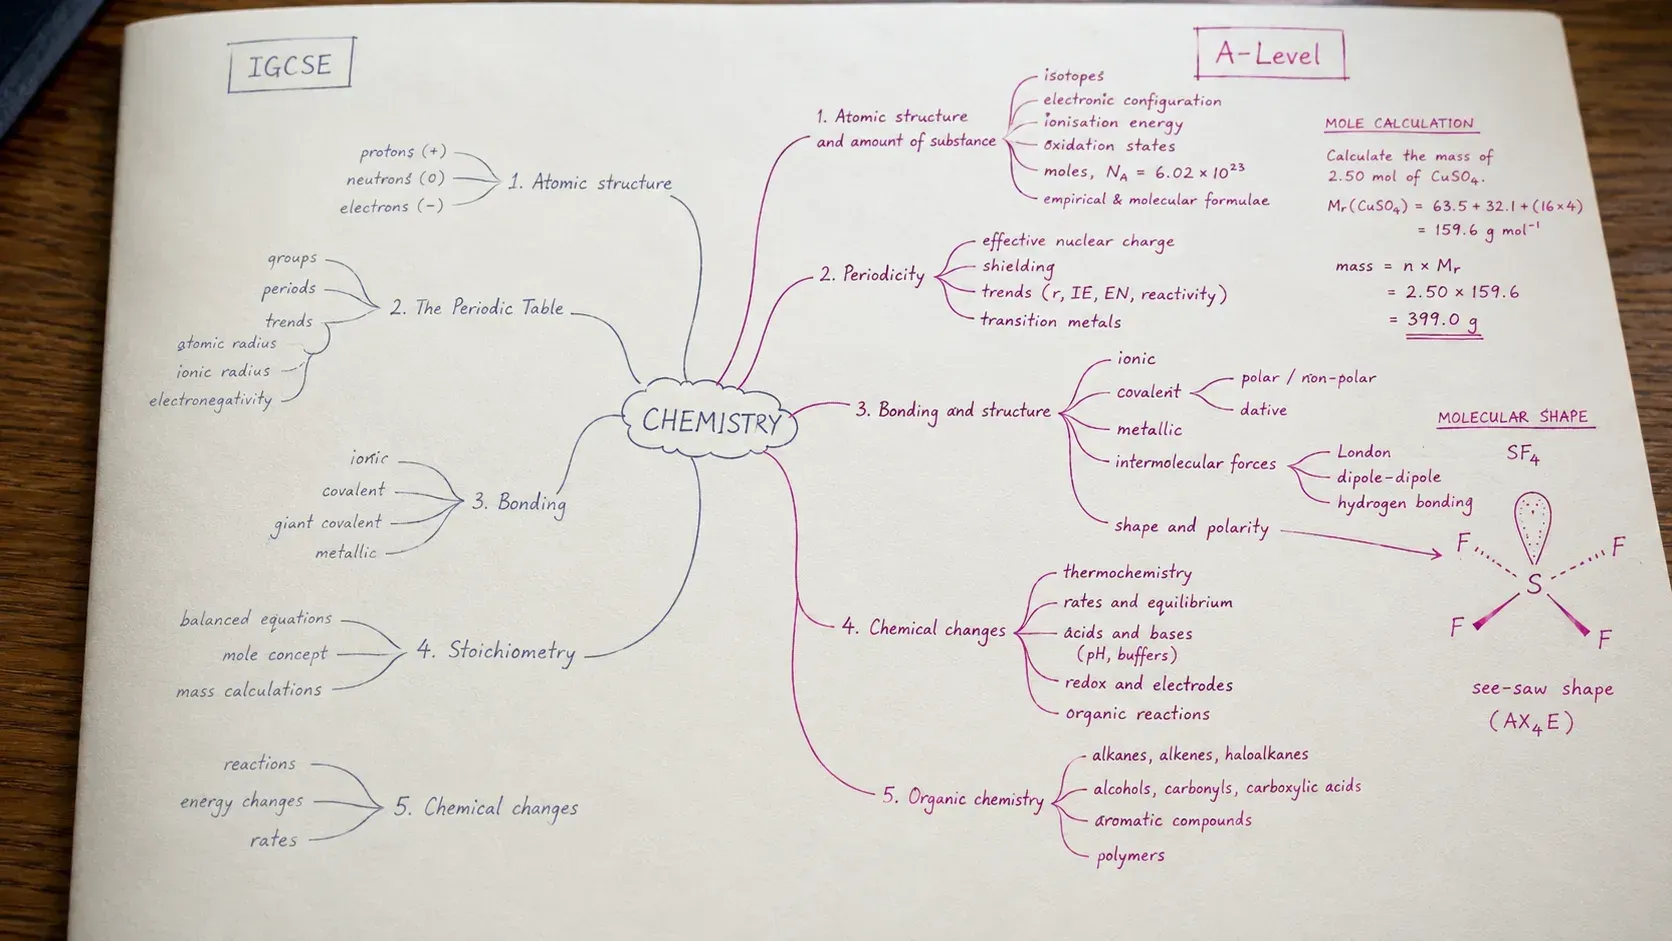 IGCSE
protons (+)
neutrons (0)
electrons (-)
1. Atomic structure
groups
periods
trends
atomic radius
ionic radius
electronegativity
2. The Periodic Table
ionic
covalent
giant covalent
metallic
3. Bonding
balanced equations
mole concept
mass calculations
4. Stoichiometry
reactions
energy changes
rates
5. Chemical changes
CHEMISTRY
A-Level
1. Atomic structure
and amount of substance
isotopes
electronic configuration
ionisation energy
oxidation states
moles, N_A = 6.02 × 10²³
empirical & molecular formulae
2. Periodicity
effective nuclear charge
shielding
trends (r, IE, EN, reactivity)
transition metals
3. Bonding and structure
ionic
covalent
polar / non-polar
dative
metallic
intermolecular forces
London
dipole-dipole
hydrogen bonding
shape and polarity
4. Chemical changes
thermochemistry
rates and equilibrium
acids and bases
(pH, buffers)
redox and electrodes
organic reactions
5. Organic chemistry
alkanes, alkenes, haloalkanes
alcohols, carbonyls, carboxylic acids
aromatic compounds
polymers
MOLE CALCULATION
Calculate the mass of
2.50 mol of CuSO₄.
Mᵣ(CuSO₄) = 63.5 + 32.1 + (16×4)
= 159.6 g mol⁻¹
mass = n × Mᵣ
= 2.50 × 159.6
= 399.0 g
MOLECULAR SHAPE
SF₄
F F
S
F F
see-saw shape
(AX₄E)